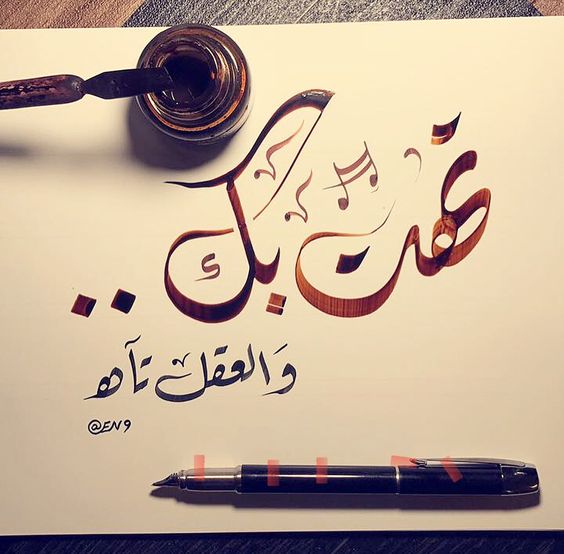 تهت بك ..
وَالعقل تآه
@EN9